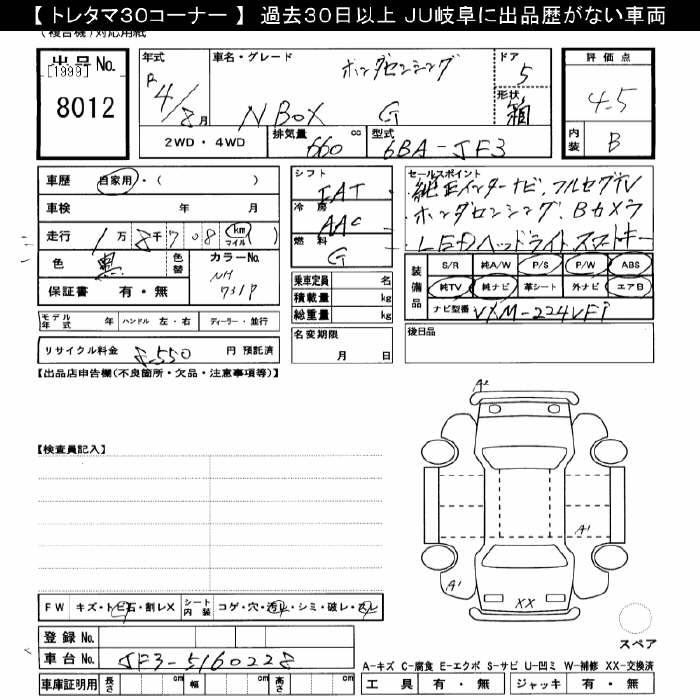 【 トレタマ30コーナー 】 過去30日以上 JU岐阜に出品歴がない車両
(複合機)対応用紙
出品No.
[1999]
8012
年式
R 4/8月
車名・グレード
ホンダセンシング
N BOX G
ドア
5
形状
箱
評価点
4.5
内装
B
2WD・4WD
排気量
660 cc
型式
6BA-JF3
車歴 自家用・( )
車検 年 月
走行 1万 8千708 (km マイル)
色 黒
色替
カラーNo.
NH
731P
保証書 有・無
シフト
IAT
冷房
AAC
燃料
G
乗車定員 名
積載量 kg
総重量 kg
名変期限
月 日
セールスポイント
・純正インターナビ、フルセグTV
・ホンダセンシング、Bカメラ
・LEDヘッドライト、スマートキー
装備品
S/R 純A/W P/S P/W ABS
純TV 純ナビ 革シート 外ナビ エアB
ナビ型番 VXM-224VFi
後日品
モデル年式 年 ハンドル 左・右 ディーラー・並行
リサイクル料金 8,550 円 預託済
【出品店申告欄(不良個所・欠品・注意事項等)】
【検査員記入】
A2
A1
A1
XX
FW キズ・トビ石・割レX シート内装 コゲ・穴・汚レ・シミ・破レ・スレ
登録No.
車台No. JF3-5160228
車庫証明用 長さ cm 幅 cm 高さ cm
スペア
A-キズ C-腐食 E-エクボ S-サビ U-凹ミ W-補修 XX-交換済
工具 有・無 ジャッキ 有・無